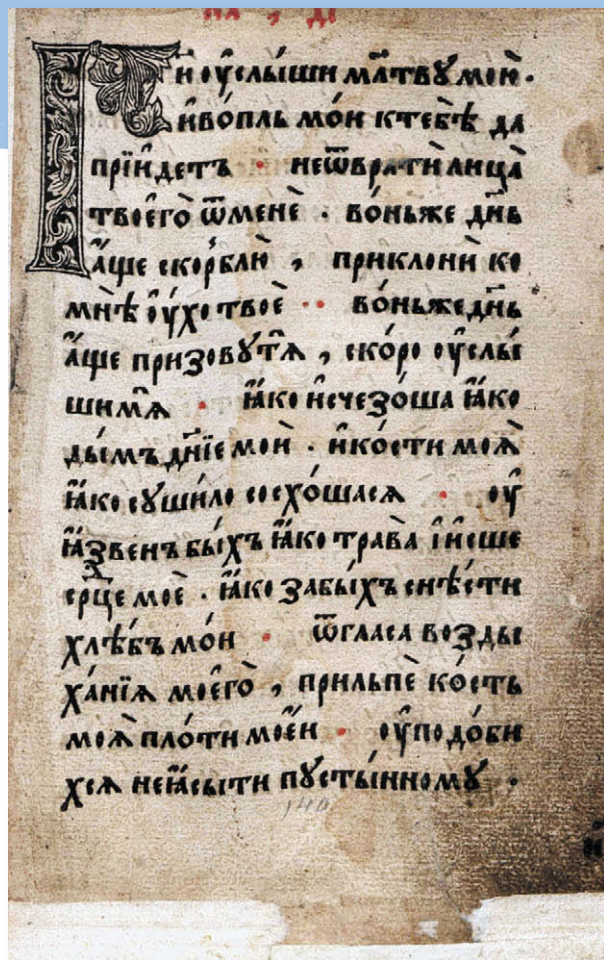 Ги оу҆слы́ши мл҃тву мою̀.
и҆во́пль мо́и ктебѣ̀ да
прїи́детъ · неѿвратѝ лица̀
твоегѡ̀ ѿменѐ . во́ньже дн҃ь
а҆́ще скорблю̀ , приклонѝ ко
мнѣ̀ оу҆́хо твоѐ · во́ньжедн҃ь
а҆́ще призову́тѧ , ско́ро оу҆слы́
шимѧ̀ · ꙗ҆́ко и҆счезо́ша ꙗ҆́ко
ды́мъ дн҃їе моѝ . и҆ко́сти моѧ̀
ꙗ҆́ко суши́ло сосхо́шасѧ · оу҆
ꙗ҆́звенъ бы́хъ ꙗ҆́ко трава̀ і҆и҆сше
ср҃це моѐ . ꙗ҆́ко забы́хъ снѣ́сти
хлѣ́бъ мо́и · ѿгласа возды
ха́нїѧ моегѡ̀ , прильпѐ ко́сть
моѧ̀ пло́ти мое́и · оу҆подо́би
хсѧ неꙗ҆́сыти пусты́нному .
140